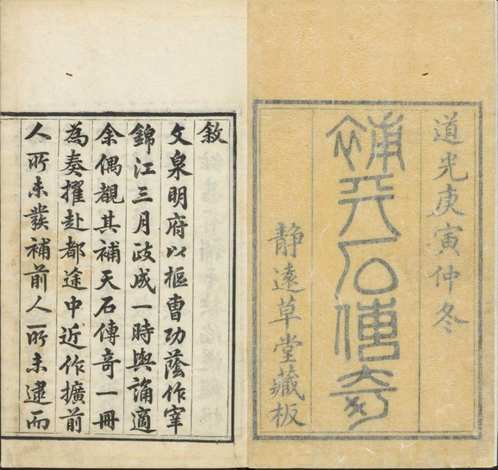 道光庚寅仲冬
補天石傳奇
靜遠草堂藏板
敘
文泉明府以樞曹功蔭作宰
錦江三月政成一時輿誦適
余偶觀其補天石傳奇一冊
為奏擢赴都途中近作擴前
人所未發補前人所未逮而